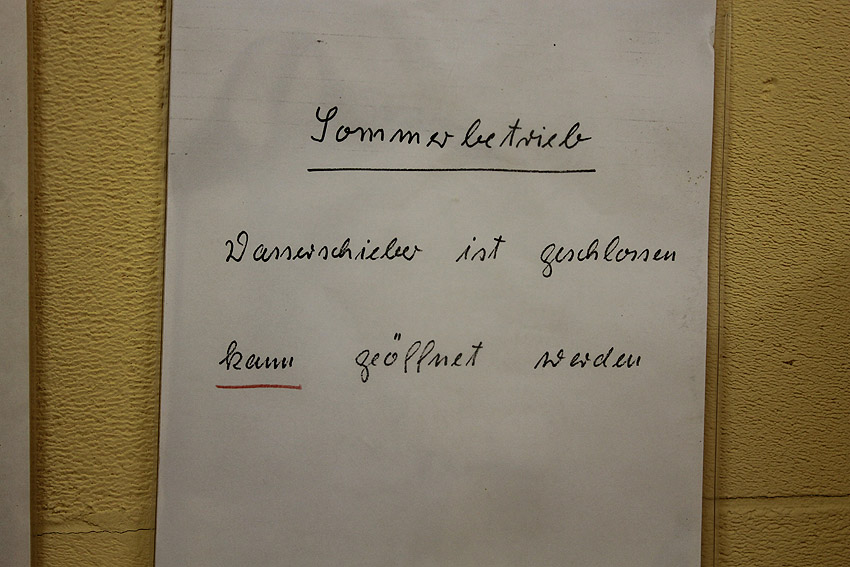 Sommerbetrieb
Wasserschieber ist geschlossen
kann geöffnet werden